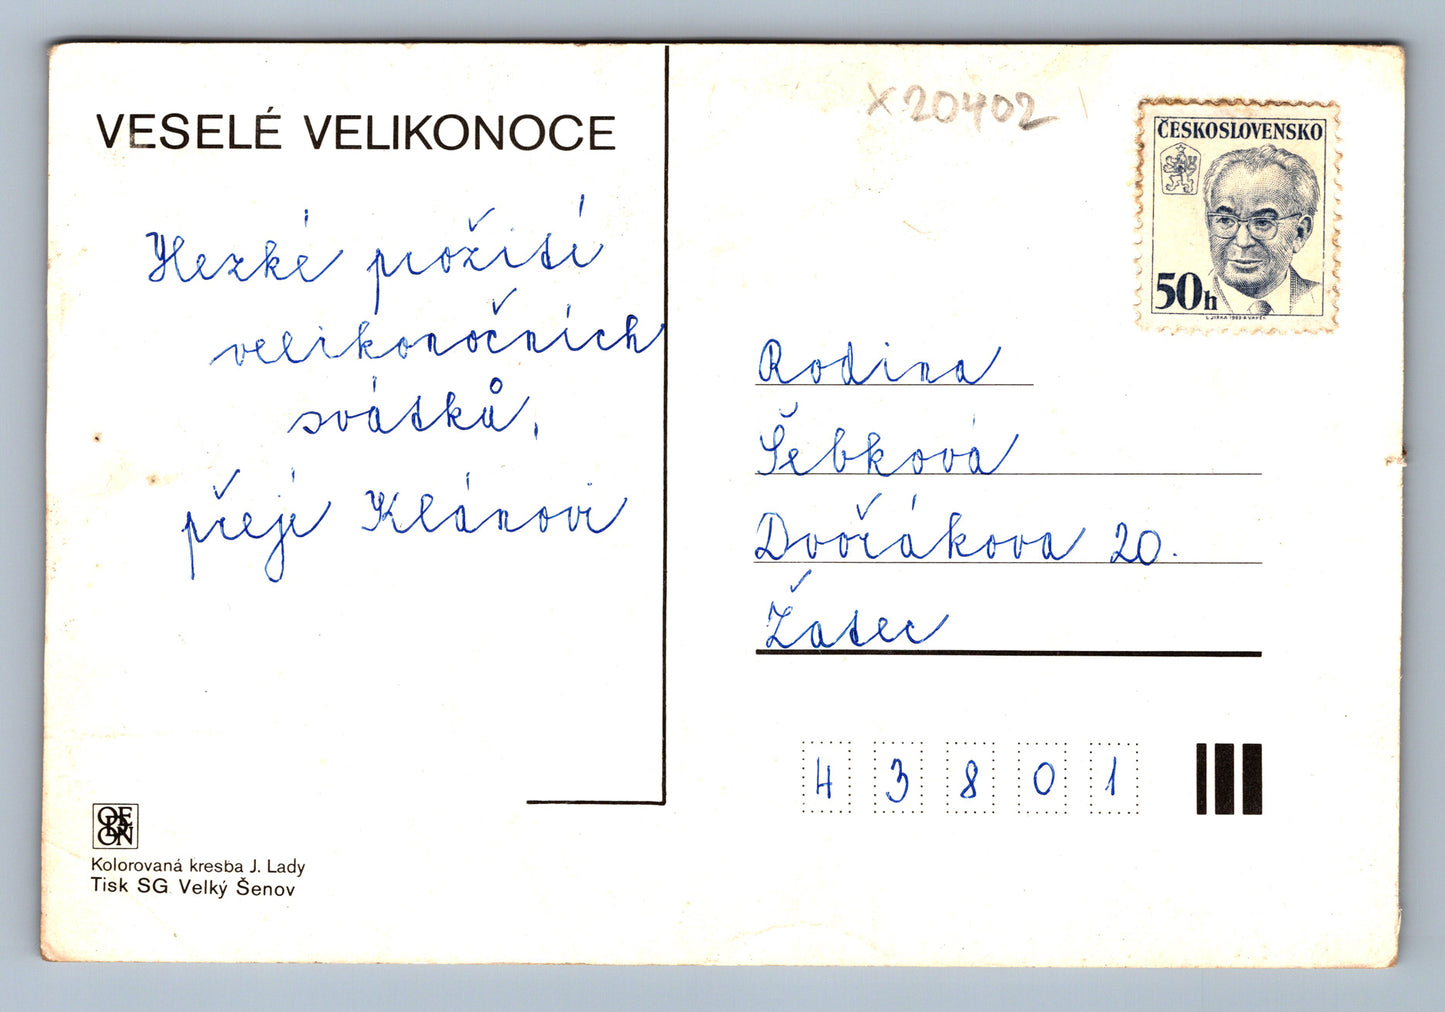 VESELÉ VELIKONOCE
Hezké prožití
velikonočních
svátků,
přeje Klánovi
ODEON
Kolorovaná kresba J. Lady
Tisk SG Velký Šenov
X20402
ČESKOSLOVENSKO
50h
Rodina
Šebková
Dvořákova 20.
Žatec
43801